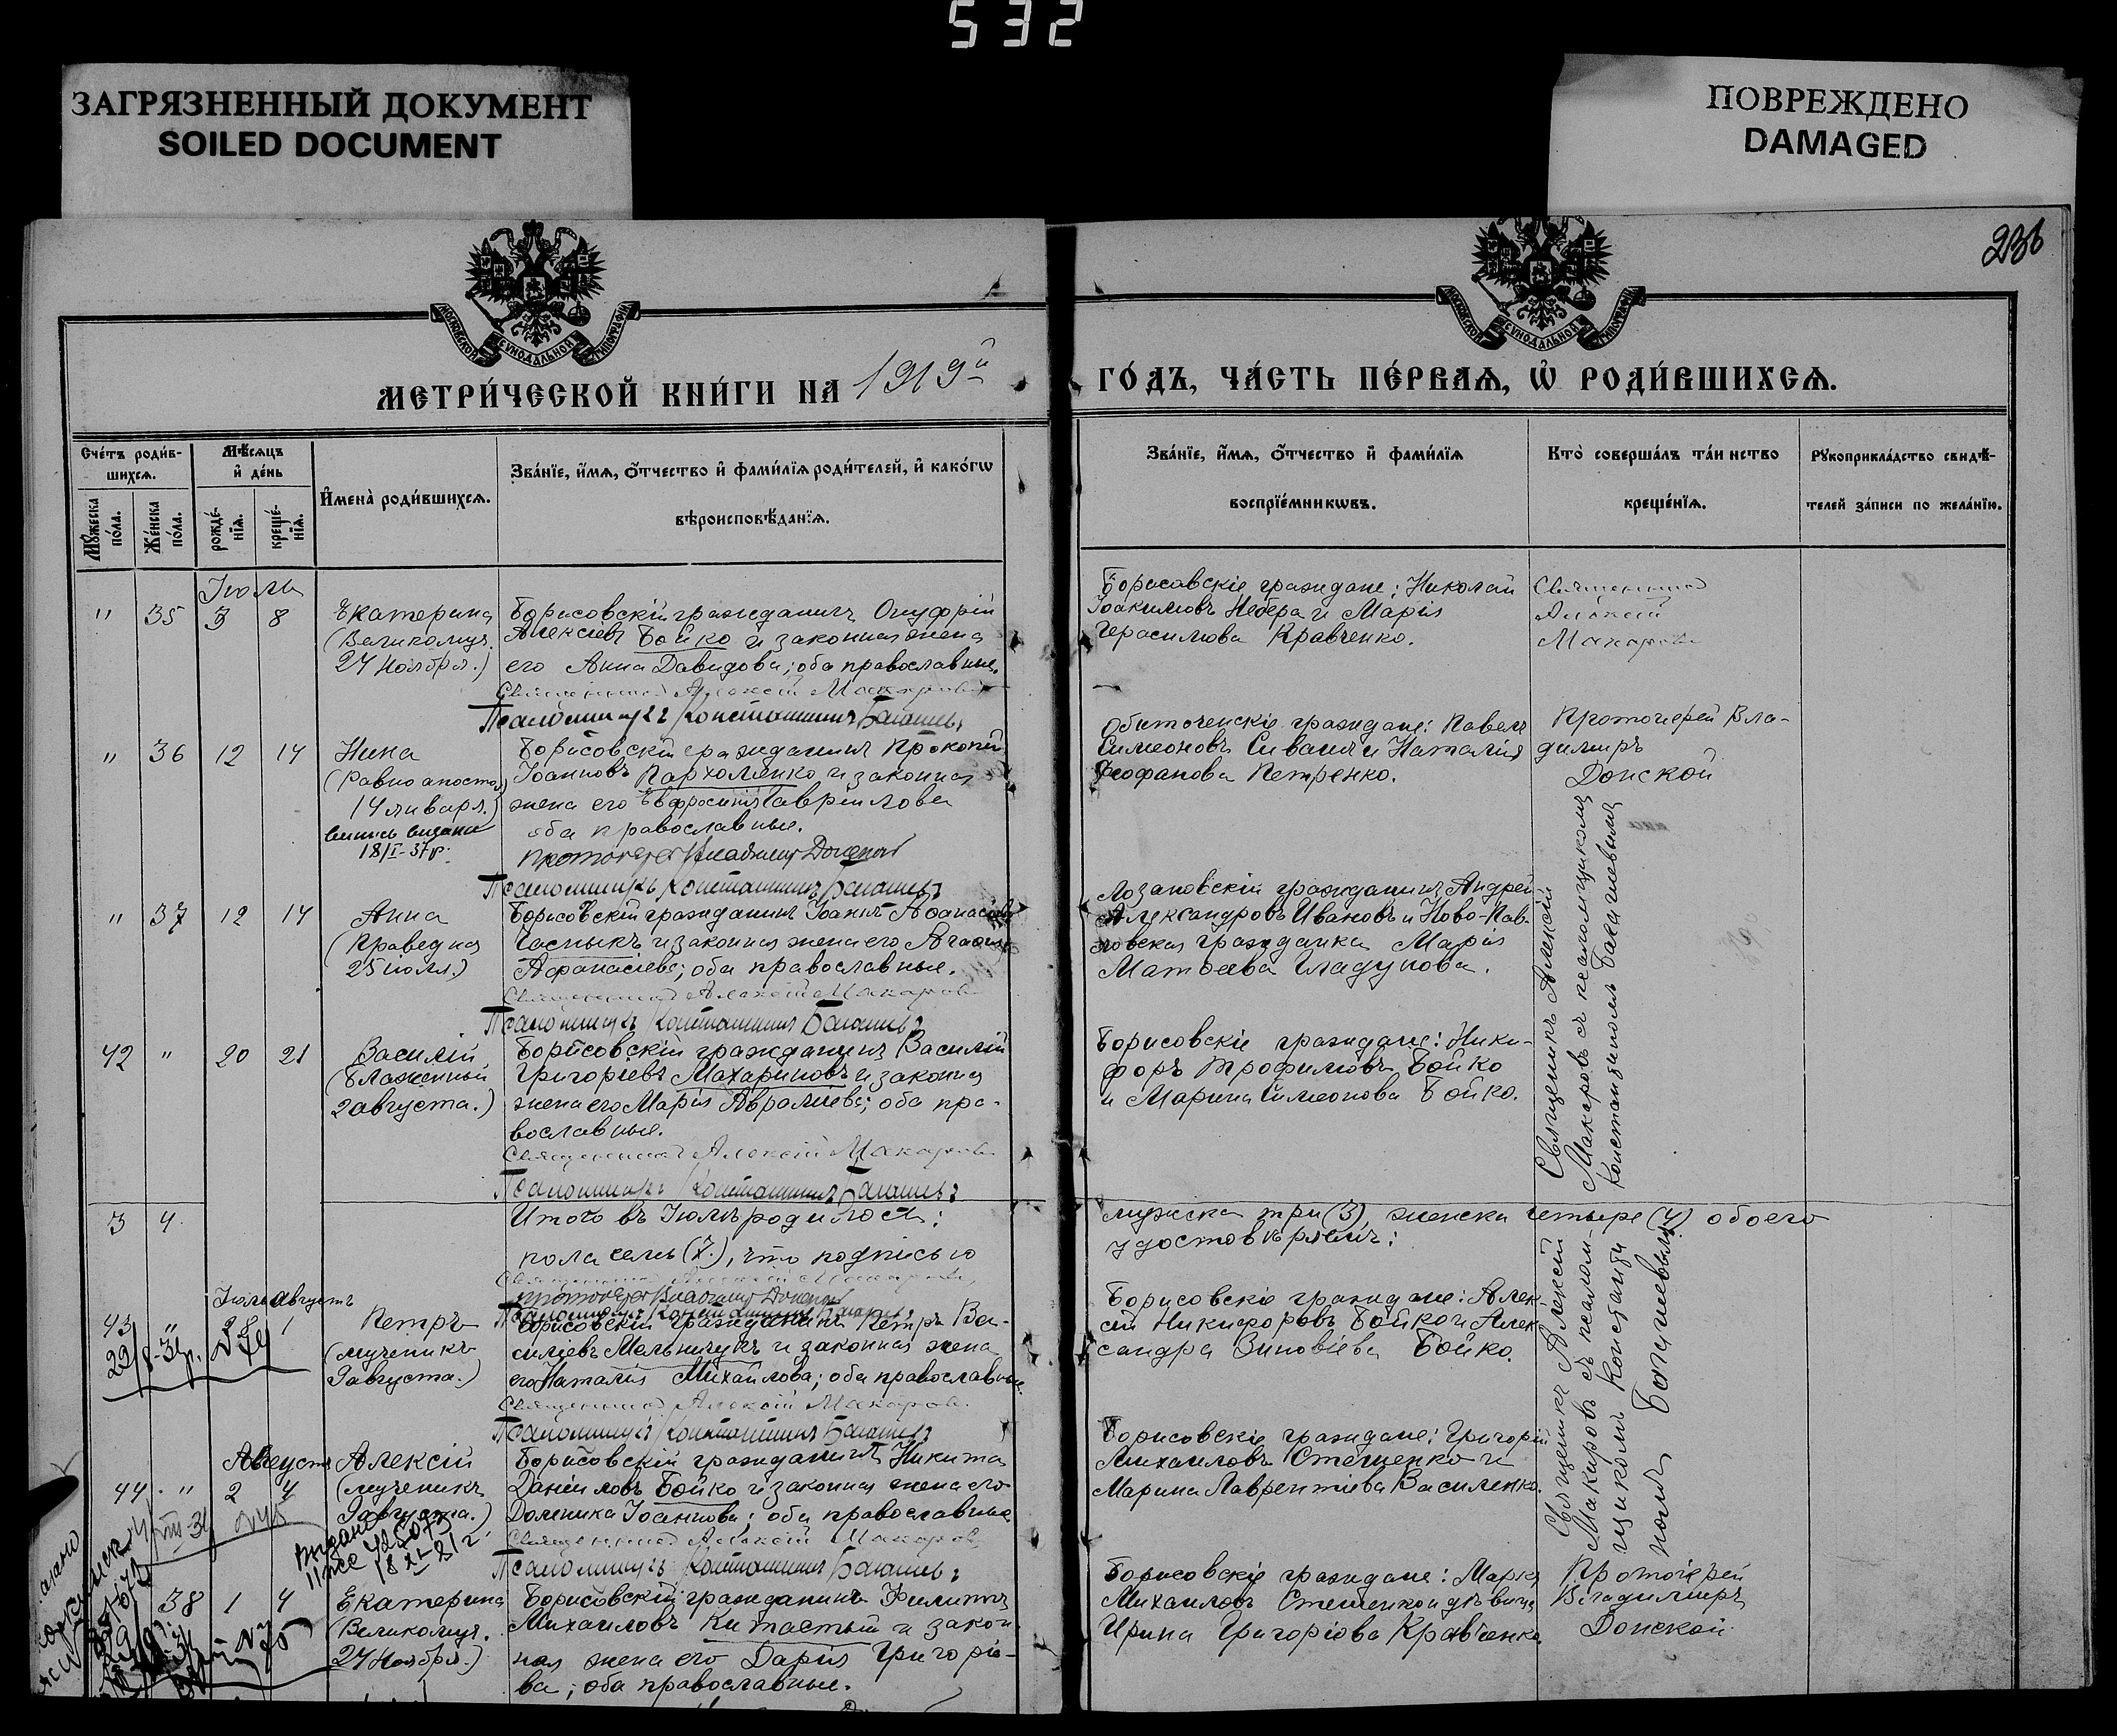 532
ЗАГРЯЗНЕННЫЙ ДОКУМЕНТ
SOILED DOCUMENT
ПОВРЕЖДЕНО
DAMAGED
236
МОСКОВСКОЙ СѴНОДАЛЬНОЙ ТИПОГРАФІИ
МОСКОВСКОЙ СѴНОДАЛЬНОЙ ТИПОГРАФІИ
МЕТРИ́ЧЕСКОЙ КНИ́ГИ НА 1919й
ГО́ДЪ, ЧА́СТЬ ПЕ́РВАѦ, Ѡ҆ РОДИ́ВШИХСѦ.
Сче́тъ роди́в-
шихсѧ.
Мꙋжеска по́ла.
Же́нска по́ла.
Мѣ́сѧцъ
и҆ де́нь
рожде́-
нїѧ.
креще́-
нїѧ.
И҆мена̀ роди́вшихсѧ.
Зва́нїе, и҆́мѧ, ѻ҆́тчество и҆ фами́лїѧ роди́телей, и҆ како́гѡ
вѣроисповѣ́данїѧ.
Зва́нїе, и҆́мѧ, ѻ҆́тчество и҆ фами́лїѧ
воспрїе́мникѡвъ.
Кто̀ соверша́лъ та́инство
креще́нїѧ.
Рꙋкоприкла́дство свидѣ́-
телей за́писи по жела́нїю.
Іюль
" 35 3 8
Екатерина
(Великомуч.
24 Ноября.)
Борисовскій гражданинъ Онуфрій
Алексіевъ Бойко и законная жена
его Анна Давидова; оба православные.
Священникъ Алексій Макаровъ
Псаломщикъ Константинъ
Борисовскіе граждане: Николай
Іоакимовъ Небера и Марія
Герасимова Кравченко.
Священникъ
Алексій
Макаровъ
" 36 12 14
Нина
(Равноапостол.
14 января.)
выпись выдана
18/I-37 р.
Борисовскій гражданинъ Прокопій
Іоанновъ Пархоменко и законная
жена его Евфросинія Гавріилова
оба православные.
Протоіерей Владимиръ Донской
Псаломщикъ Константинъ
Обиточенскіе граждане: Павелъ
Симеоновъ Сивашъ и Наталія
Ѳеофанова Петренко.
Протоіерей Вла-
димиръ
Донской
" 37 12 14
Анна
(Праведная
25 іюля.)
Борисовскій гражданинъ Іоаннъ
и законная жена его
Аѳанасіева; оба православные.
Священникъ Алексій Макаровъ
Псаломщикъ Константинъ
Лозановскій гражданинъ Андрей
Александровъ Ивановъ и Ново-Пав-
ловская гражданка Марія
Матѳеева Гладунова.
42 " 20 21
Василій
(Блаженный
2 августа.)
Борисовскій гражданинъ Василій
Григорьевъ Махариновъ и законная
жена его Марія Авраміева; оба пра-
вославные.
Священникъ Алексій Макаровъ
Псаломщикъ Константинъ
Борисовскіе граждане: Ники-
форъ Трофимовъ Бойко
и Марина Симеонова Бойко.
Священникъ Алексій
Макаровъ съ псаломщикомъ
Константиномъ
3 4
Итого въ Іюлѣ родилось:
мужска три (3), женска четыре (4) обоего
пола семь (7.), что подписью
удостовѣряемъ:
Священникъ Алексій Макаровъ
Протоіерей Владимиръ Донской
Псаломщикъ Константинъ
Іюль Августъ
43 " 28 1
Петръ
(мученикъ
9 августа.)
Борисовскій гражданинъ Петръ Ва-
силіевъ Мельничукъ и законная жена
его Наталія Михайлова; оба православные
Священникъ Алексій Макаровъ
Псаломщикъ Константинъ
Борисовскіе граждане: Алек-
сій Никифоровъ Бойко и Алек-
сандра Зиновіева Бойко.
Августъ
44 " 2 4
Алексій
(мученикъ
9 августа.)
Борисовскій гражданинъ Никита
Даніиловъ Бойко и законная жена его
Домника Іоаннова; оба православные
Священникъ Алексій Макаровъ
Псаломщикъ Константинъ
Борисовскіе граждане: Григорій
Михаиловъ Стешенко и
Марина Лаврентіева Василенко.
Священникъ Алексій
Макаровъ съ псалом-
щикомъ Константи-
номъ
38 1 4
Екатерина
(Великомуч.
24 Ноября.)
Борисовскій гражданинъ Филиппъ
Михаиловъ Китастый и закон-
ная жена его Дарія Григоріе-
ва; оба православные.
Борисовскіе граждане: Маркъ
Михаиловъ Стешенко и дѣвица
Ирина Григоріева Кравченко
Протоіерей
Владимиръ
Донской